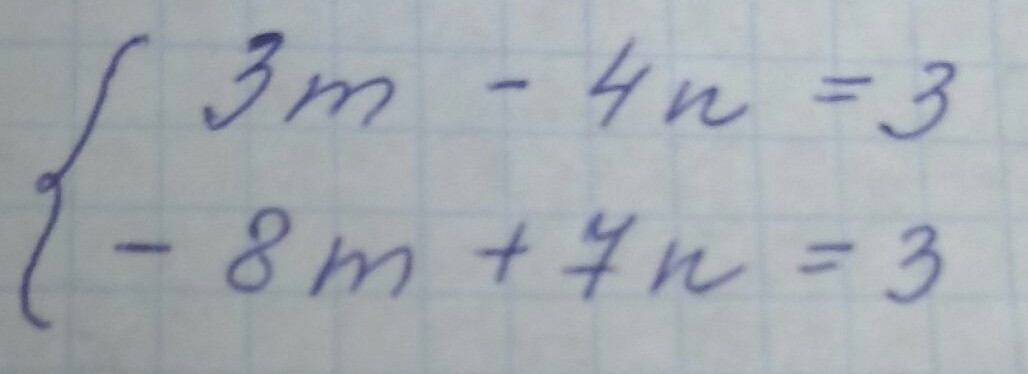 3m - 4n = 3
- 8m + 7n = 3